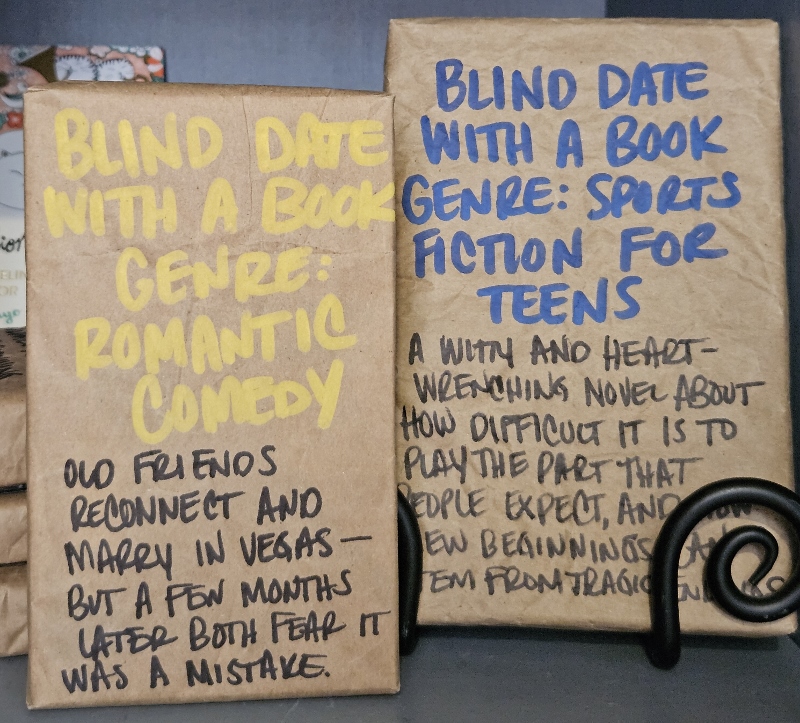 BLIND DATE
WITH A BOOK
GENRE:
ROMANTIC
COMEDY
OLD FRIENDS
RECONNECT AND
MARRY IN VEGAS—
BUT A FEW MONTHS
LATER BOTH FEAR IT
WAS A MISTAKE.
BLIND DATE
WITH A BOOK
GENRE: SPORTS
FICTION FOR
TEENS
A WITTY AND HEART-
WRENCHING NOVEL ABOUT
HOW DIFFICULT IT IS TO
PLAY THE PART THAT
PEOPLE EXPECT, AND
BEGINNINGS
FROM TRAGIC